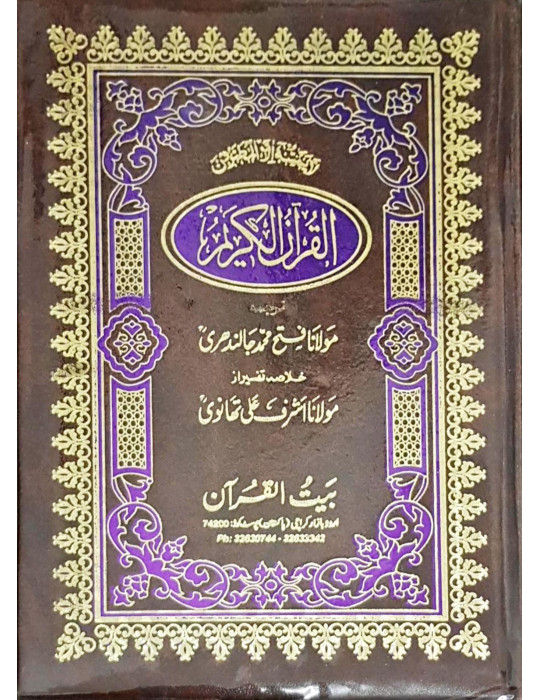 لا يمسه إلا المطهرون
القرآن الكريم
مولانا فتح محمد جالندھریؒ
خلاصہ تفسیر از
مولانا اشرف علی تھانویؒ
بیت القرآن
اردو بازار کراچی (پاکستان) پوسٹ کوڈ: 74200
Ph: 32630744 - 32633342